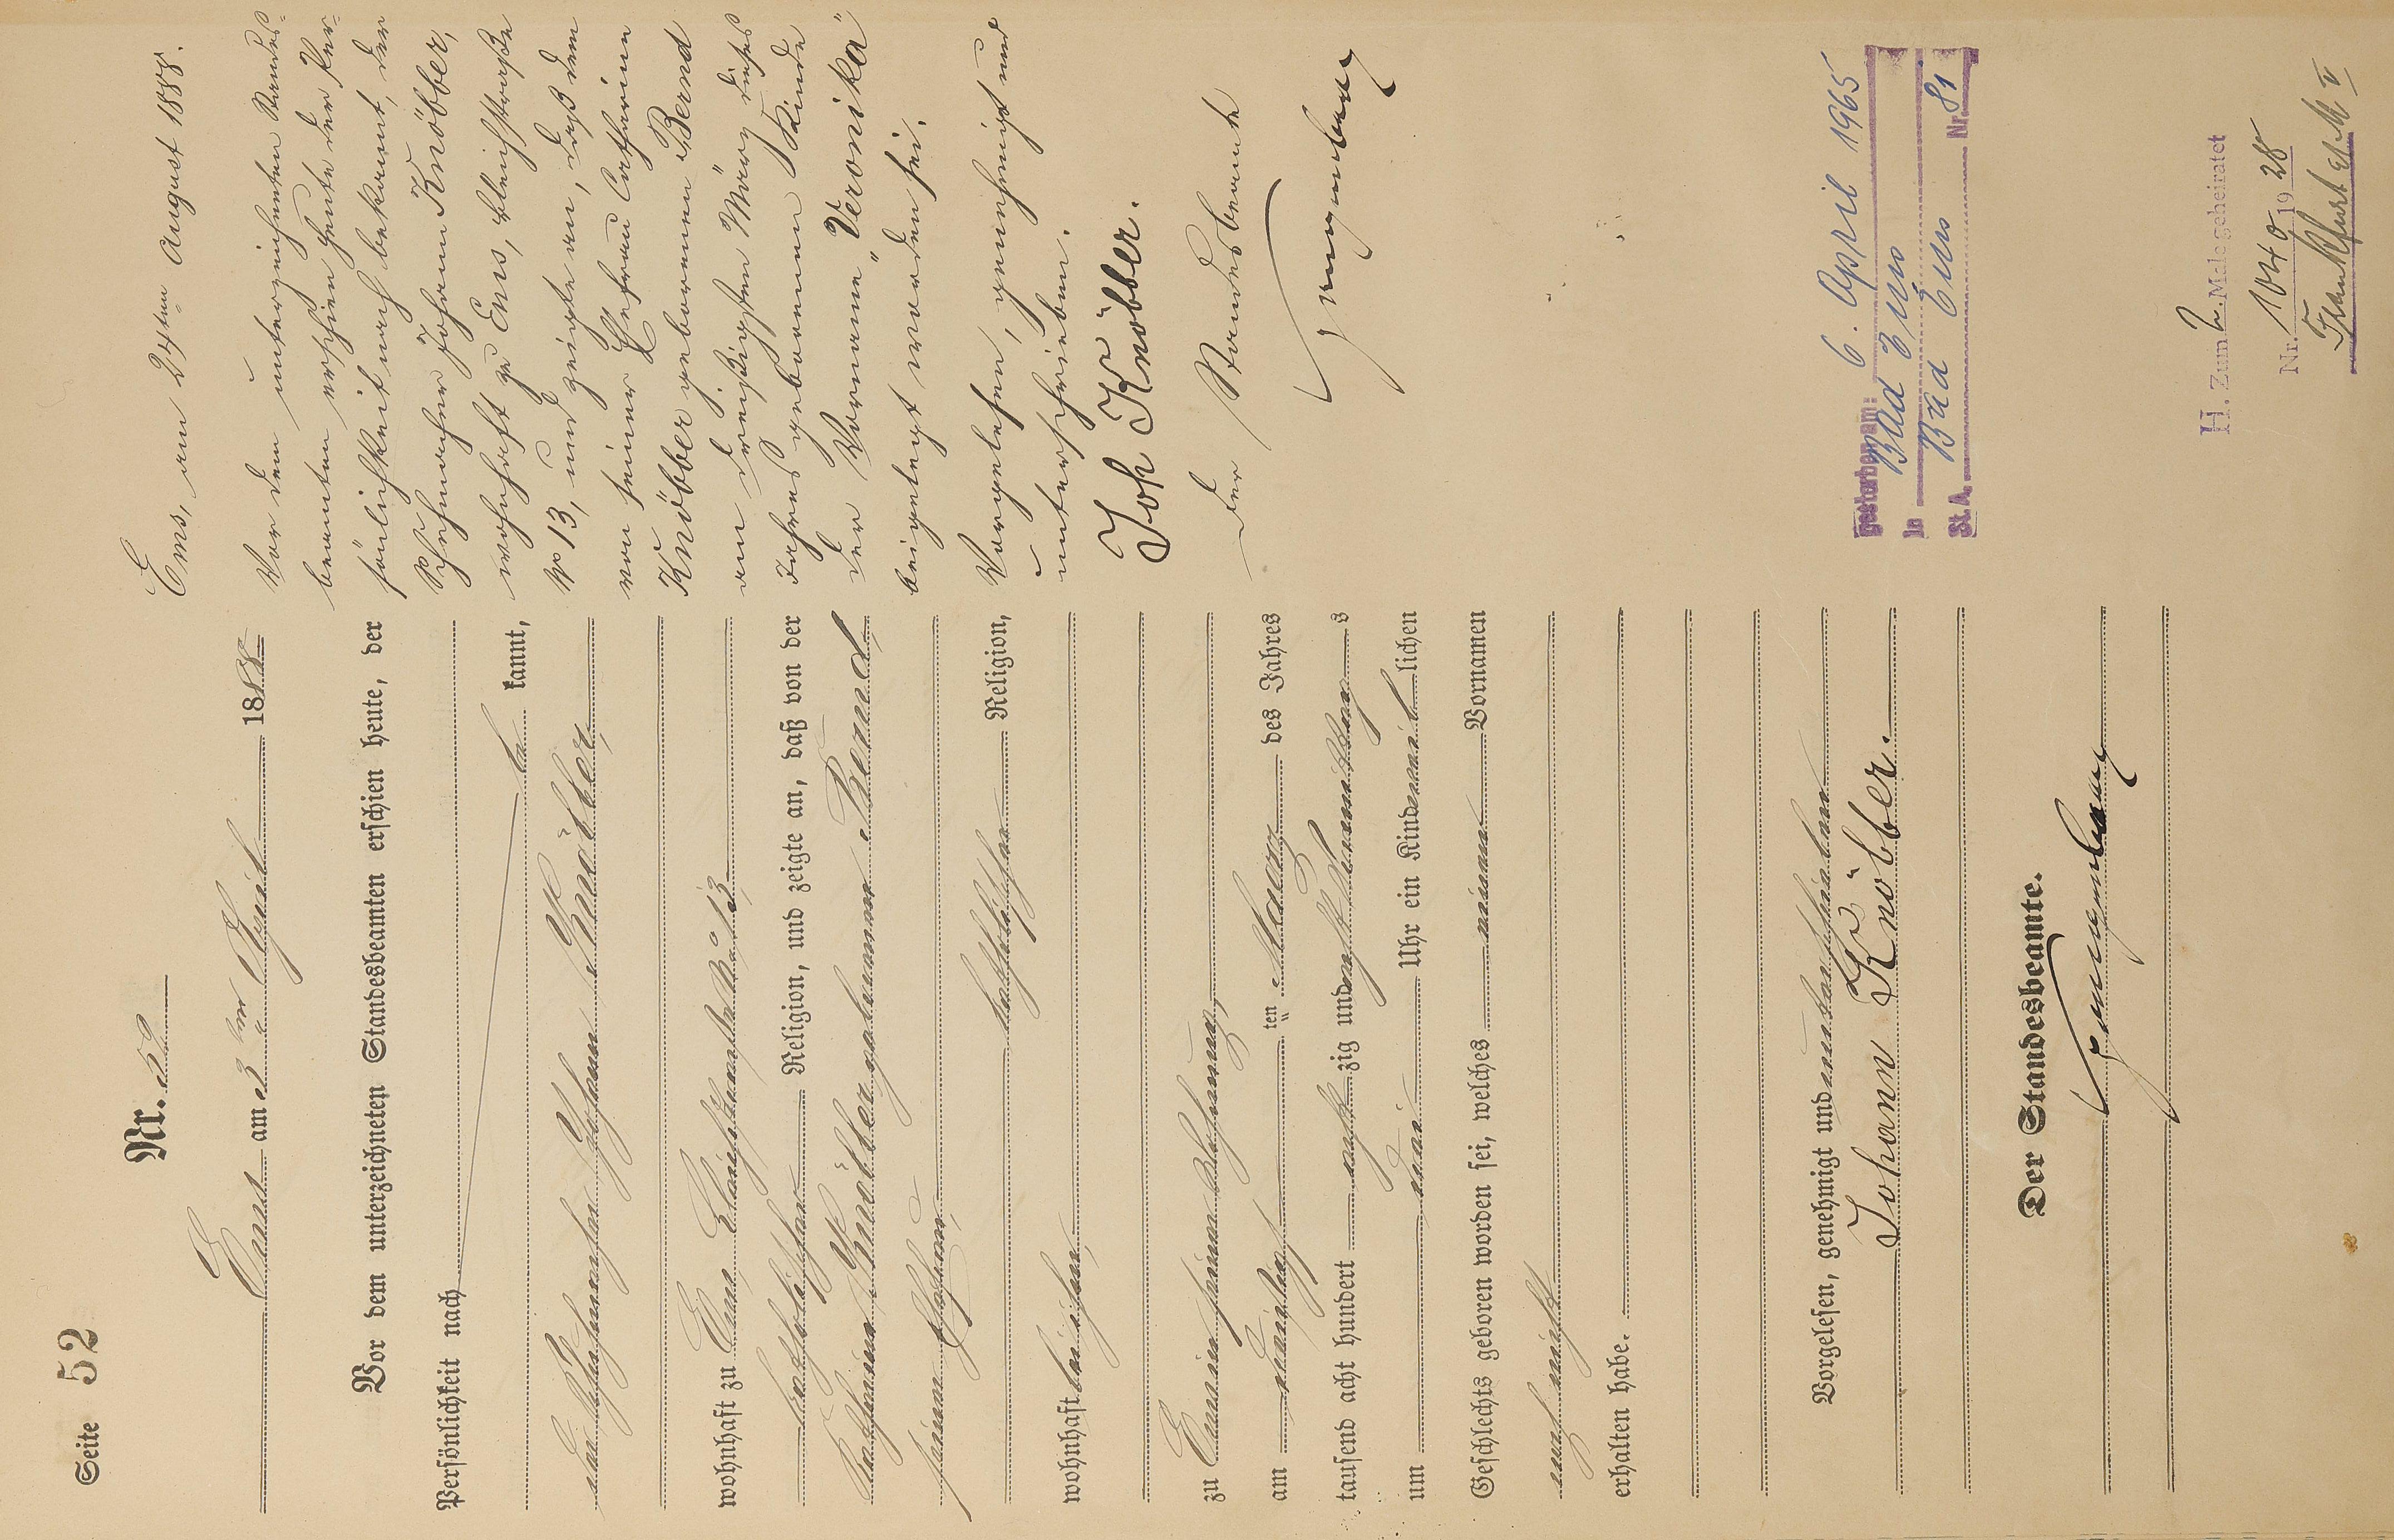 Seite 52
Nr. 52
Ems am 3ten April 1888
Vor dem unterzeichneten Standesbeamten erschien heute, der
Persönlichkeit nach
be kannt,
der Schuhmacher Johann Knöbber,
wohnhaft zu Ems, Bleichstraße No 13
katholischer Religion, und zeigte an, daß von der
Katharina Knöbber geborenen Bernd,
seiner Ehefrau,
katholischer Religion,
wohnhaft bei ihm,
zu Ems in seiner Wohnung,
am dreißigsten März des Jahres
tausend acht hundert acht zig und acht Vormittags
um drei Uhr ein Kind weib lichen
Geschlechts geboren worden sei, welches einen Vornamen
noch nicht
erhalten habe.
Vorgelesen, genehmigt und unterschrieben
Johann Knöbber.
Der Standesbeamte.
Ems, am 24ten August 1888.
Vor dem unterzeichneten Standes-
beamten erschien heute der Per-
sönlichkeit nach bekannt, der
Schuhmacher Johann Knöbber,
wohnhaft zu Ems, Bleichstraße
No 13, und zeigte an, daß dem
von seiner Ehefrau Catharina
Knöbber geborenen Bernd
am dreißigsten März dieses
Jahres geborenen Kinde
der Vorname „Veronika“
beigelegt worden sei.
Vorgelesen, genehmigt und
unterschrieben.
Joh Knöbber.
Der Standesbeamte
Gestorben am: 6. April 1965
in Bad Ems
St.A. Bad Ems Nr. 81
H. Zum 2. Male geheiratet
Nr. 1040 1928
Frankfurt a/M V